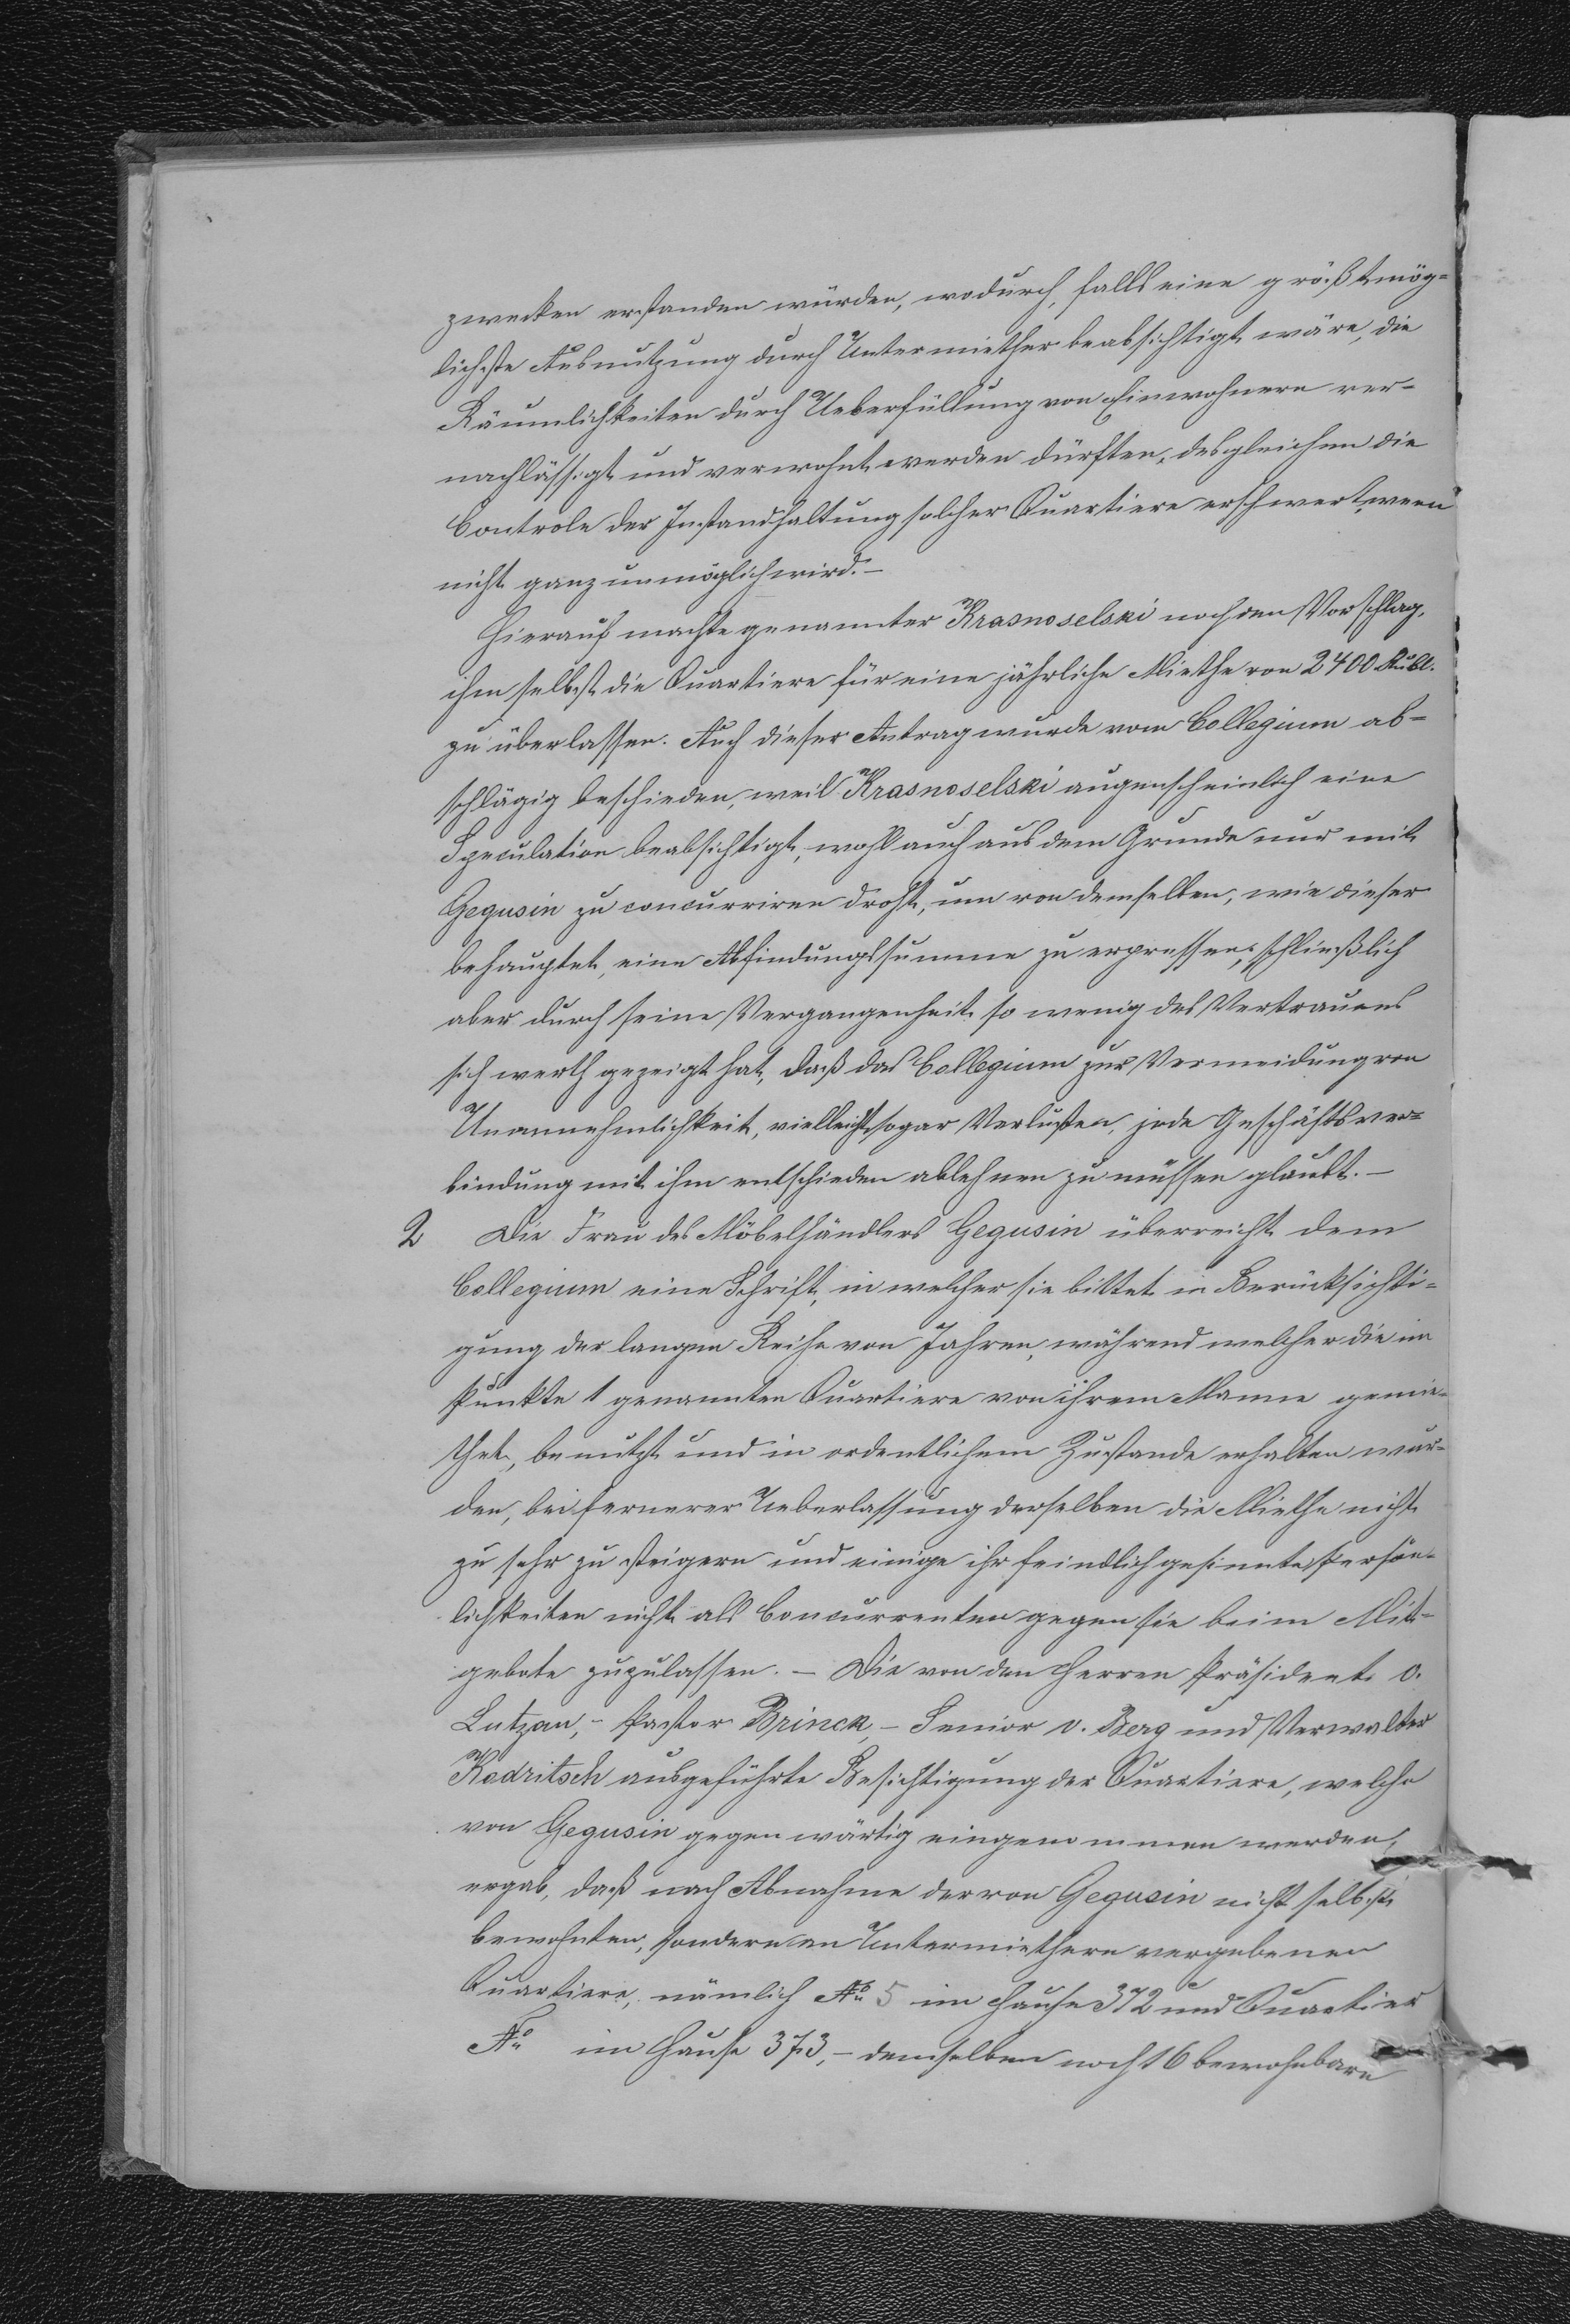 zwecken erstanden würden, wodurch, falls eine größtmög-
lichste Ausnutzung durch Untermiether beabsichtigt wäre, die
Räumlichkeiten durch Ueberfüllung von Einwohnern ver-
nachlässigt und verwohnt werden dürften, desgleichen die
Controle der Instandhaltung solcher Quartiere erschwert, wenn
nicht ganz unmöglich wird. –
Hierauf machte genannter Krasnoselski noch den Vorschlag,
ihm selbst die Quartiere für eine jährliche Miethe von 2400 Rubl.
zu überlassen. Auch dieser Antrag wurde vom Collegium ab-
schlägig beschieden, weil Krasnoselski augenscheinlich eine
Speculation beabsichtigt, wohl auch aus dem Grunde nur mit
Gegusin zu concurriren droht, um von demselben, wie dieser
behauptet, eine Abfindungssumme zu erpressen, schließlich
aber durch seine Vergangenheit so wenig des Vertrauens
sich werth gezeigt hat, daß das Collegium zur Vermeidung von
Unannehmlichkeit, vielleicht sogar Verlusten, jede Geschäftsver-
bindung mit ihm entschieden ablehnen zu müssen glaubt. –
2 Die Frau des Möbelhändlers Gegusin überreicht dem
Collegium eine Schrift, in welcher sie bittet in Berücksichti-
gung der langen Reihe von Jahren, während welcher die im
Punkte 1 genannten Quartiere von ihrem Manne gemie-
thet, benutzt und in ordentlichem Zustande erhalten wur-
den, bei fernerer Ueberlassung derselben die Miethe nicht
zu sehr zu steigern und einige ihr feindlich gesinnte Persön-
lichkeiten nicht als Concurrenten gegen sie beim Mit-
gebote zuzulassen. – Die von den Herren Präsident v.
Lutzau, – Pastor Brinck, – Senior v. Berg und Verwalter
Kadritsch ausgeführte Besichtigung der Quartiere, welche
von Gegusin gegenwärtig eingenommen werden,
ergab, daß nach Abnahme der von Gegusin nicht selbst
bewohnten, sondern an Untermiethern vergebenen
Quartiere, nämlich No 5 im Hause 372c und Quartier
No im Hause 373, – demselben noch 16 bewohnbare